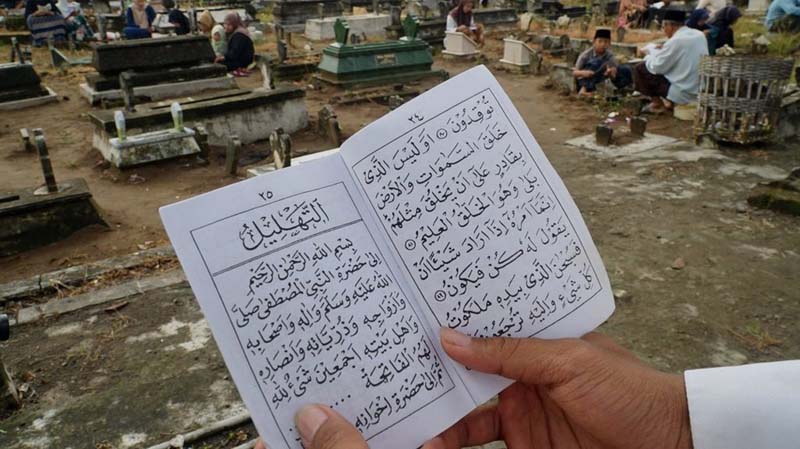 ٢٤
تُوْقِدُوْنَ ﴿٨٠﴾ اَوَلَيْسَ الَّذِيْ
خَلَقَ السَّمٰوَاتِ وَالْاَرْضَ
بِقَادِرٍ عَلٰى اَنْ يَخْلُقَ مِثْلَهُمْ
بَلٰى وَهُوَ الْخَلّٰقُ الْعَلِيْمُ ﴿٨١﴾
اِنَّمَا اَمْرُهُ اِذَا اَرَادَ شَيْئًا اَنْ
يَقُوْلَ لَهُ كُنْ فَيَكُوْنُ ﴿٨٢﴾
فَسُبْحٰنَ الَّذِيْ بِيَدِهِ مَلَكُوْتُ
كُلِّ شَيْءٍ وَاِلَيْهِ تُرْجَعُوْنَ
٢٥
اَلتَّهْلِيْلُ
بِسْمِ اللهِ الرَّحْمٰنِ الرَّحِيْمِ
اِلٰى حَضْرَةِ النَّبِيِّ الْمُصْطَفٰى صَلَّى
اللهُ عَلَيْهِ وَسَلَّمَ وَاٰلِهِ وَاَصْحَابِهِ
وَاَزْوَاجِهِ وَذُرِّيَّاتِهِ وَاَنْصَارِهِ
وَاَهْلِ بَيْتِهِ اَجْمَعِيْنَ شَيْءٌ لِلّٰهِ
لَهُمُ الْفَاتِحَةُ ........
ثُمَّ اِلٰى حَضْرَةِ اِخْوَانِهِ